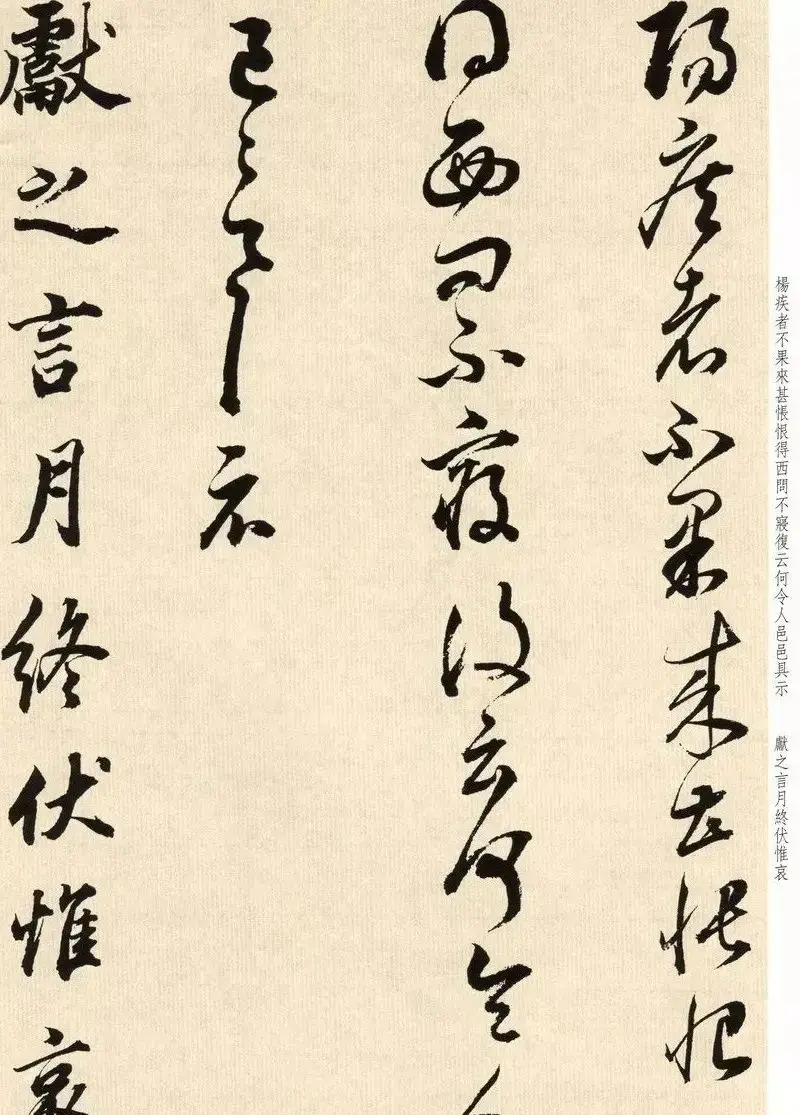 楊疾者不果來甚悵恨得西問不寢復云何令人邑邑具示
獻之言月終伏惟哀
楊疾者不果来甚悵恨
得西問不寢復云何令人
邑邑具示
獻之言月終伏惟哀